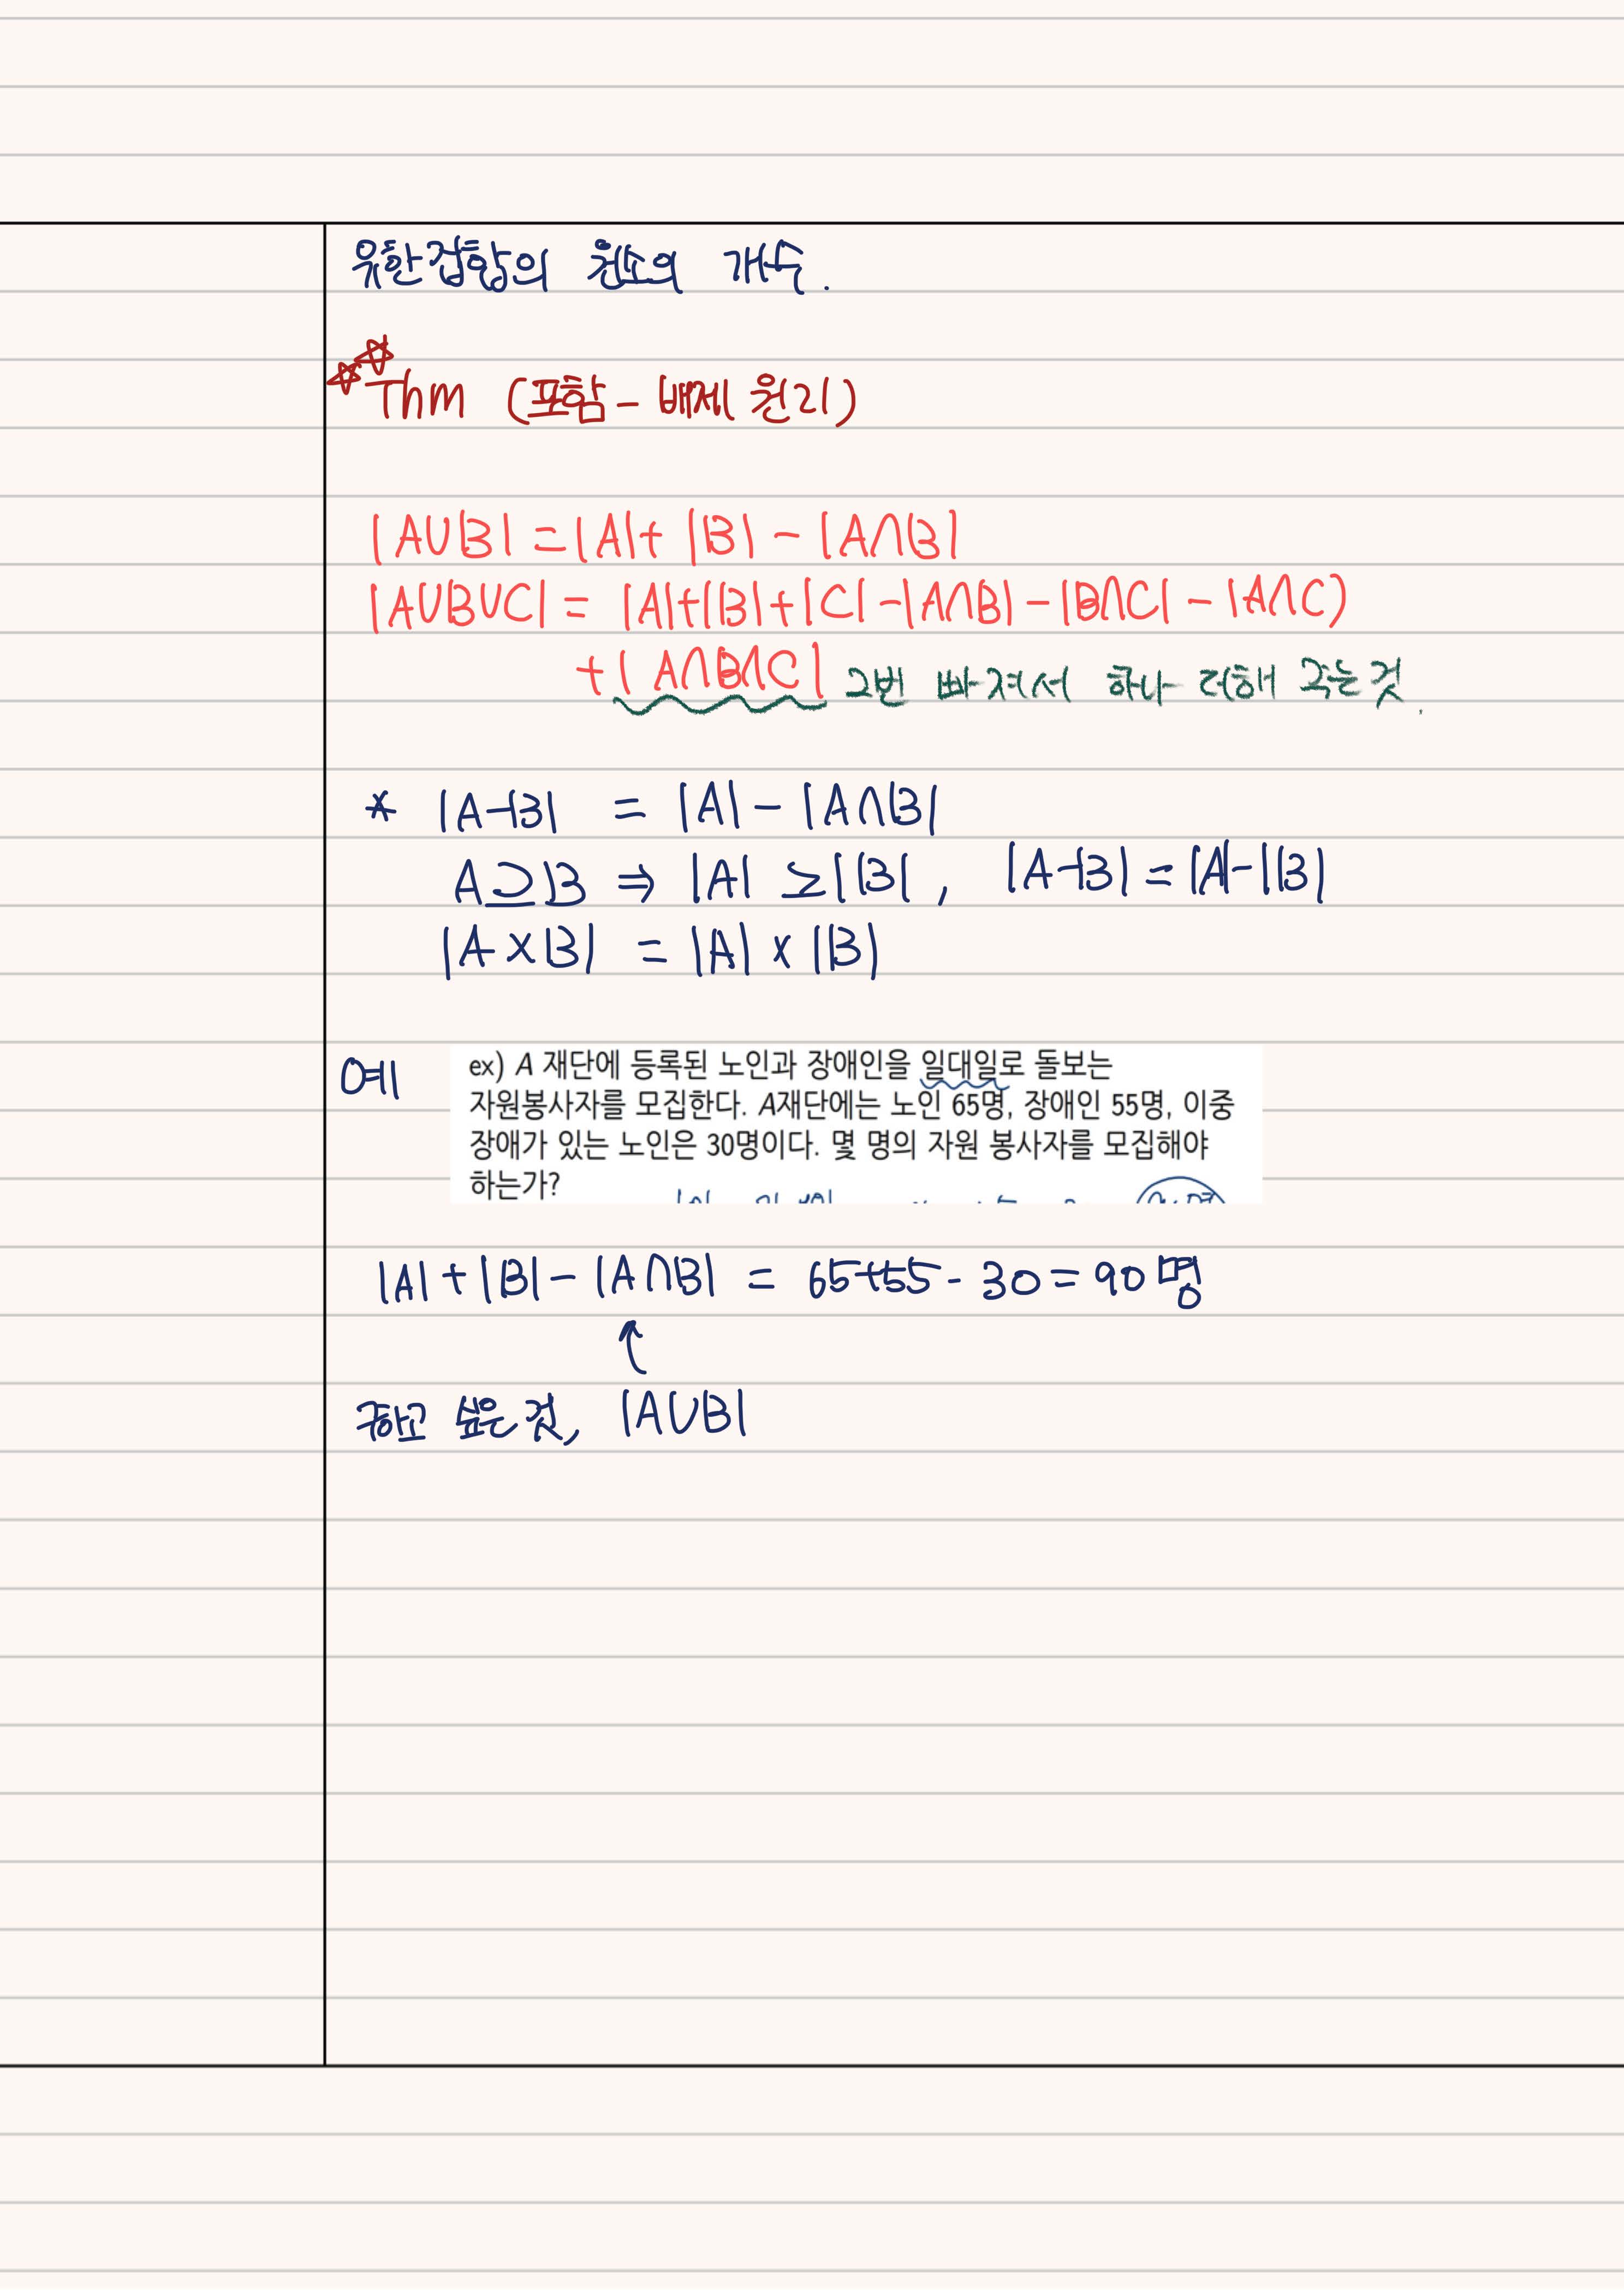 유한집합의 원소의 개수.
Thm (포함-배제 원리)
|A∪B| = |A| + |B| - |A∩B|
|A∪B∪C| = |A|+|B|+|C|-|A∩B|-|B∩C|-|A∩C|
+|A∩B∩C| 2번 빠져서 하나 더해 주는 것.
* |A-B| = |A| - |A∩B|
A⊇B ⇒ |A| ≥ |B|, |A-B| = |A|-|B|
|A×B| = |A| × |B|
예
ex) A 재단에 등록된 노인과 장애인을 일대일로 돌보는
자원봉사자를 모집한다. A재단에는 노인 65명, 장애인 55명, 이중
장애가 있는 노인은 30명이다. 몇 명의 자원 봉사자를 모집해야
하는가?
|A| + |B| - |A∩B| = 65+55-30=90명
구하고 싶은 것, |A∪B|